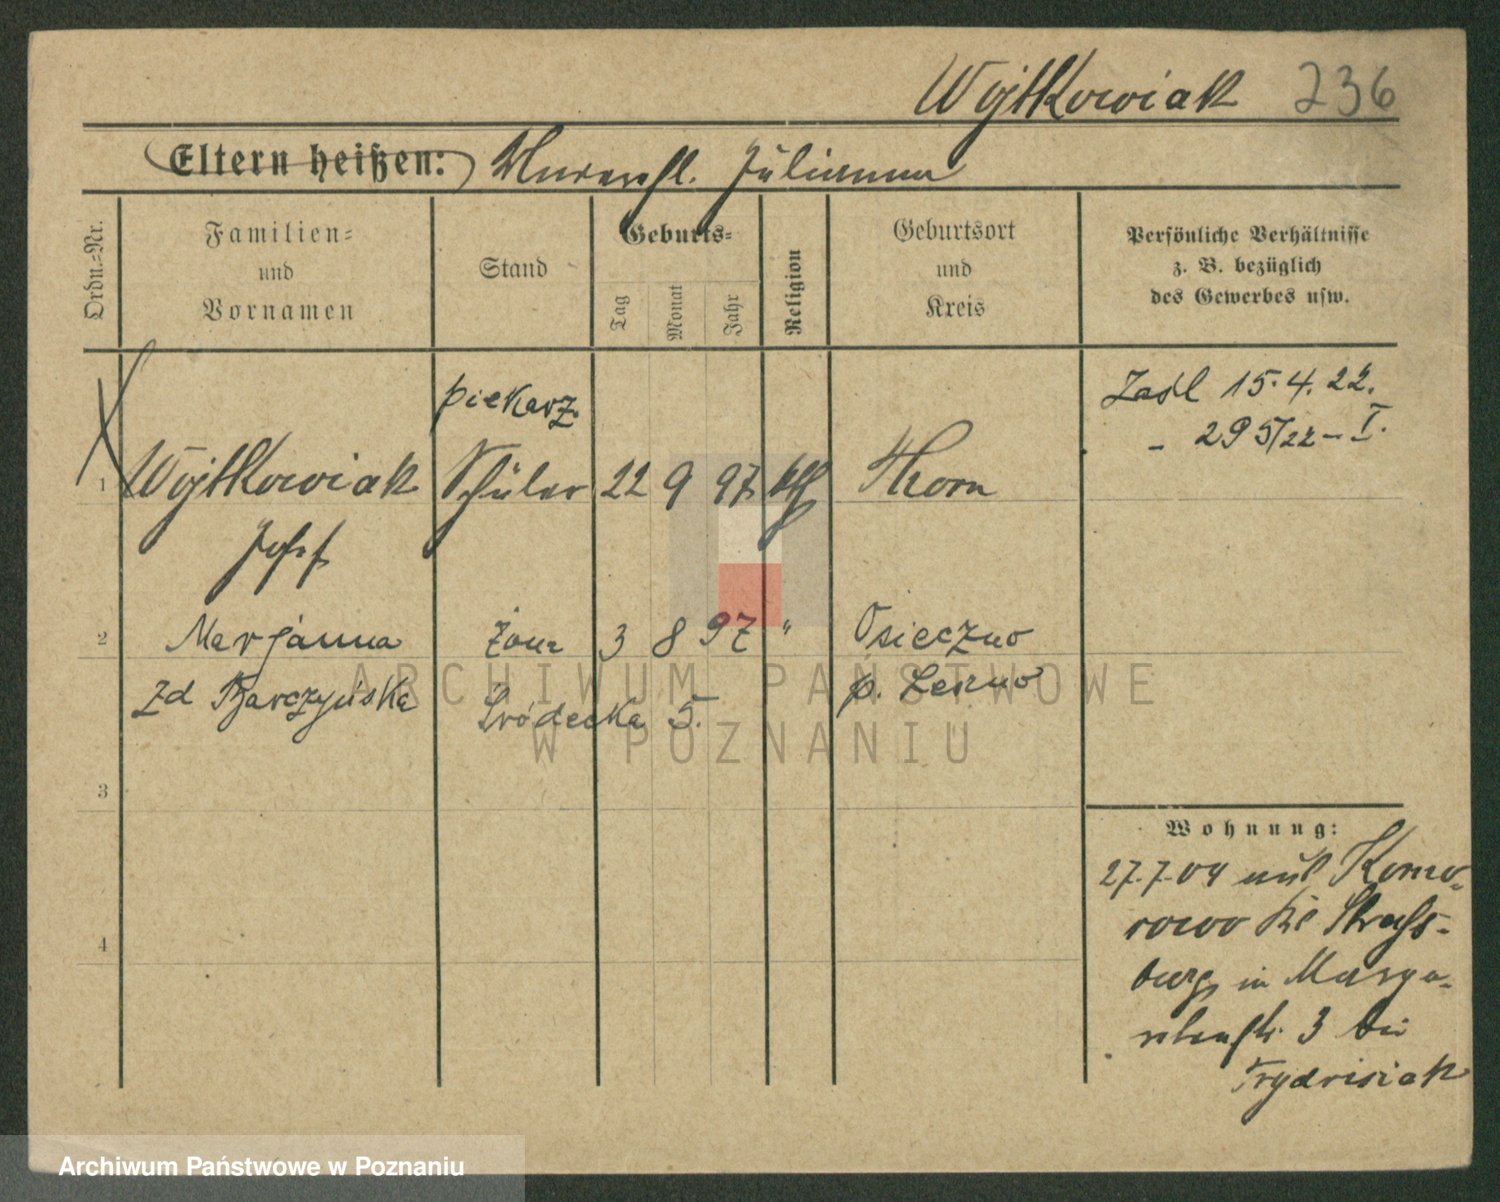 Wojtkowiak 236
Eltern heißen: Julianna
Ordn.-Nr.
Familien=
und
Vornamen
Stand
Geburts=
Tag
Monat
Jahr
Religion
Geburtsort
und
Kreis
Persönliche Verhältnisse
z. B. bezüglich
des Gewerbes usw.
piekarz
1 Wojtkowiak Schüler 22 9 97 kth Thorn
Josef
Zaśl 15.4.22.
- 295/22 - I.
2 Marjanna żona 3 8 97 " Osieczno
zd Barczyńska Śródecka 5. p. Leszno
3
4
Wohnung:
27.7.04 aus Komo-
rowo Kr Straß-
burg in Marga-
3 bei
Frydrisiak
ARCHIWUM PAŃSTWOWE
W POZNANIU
Archiwum Państwowe w Poznaniu